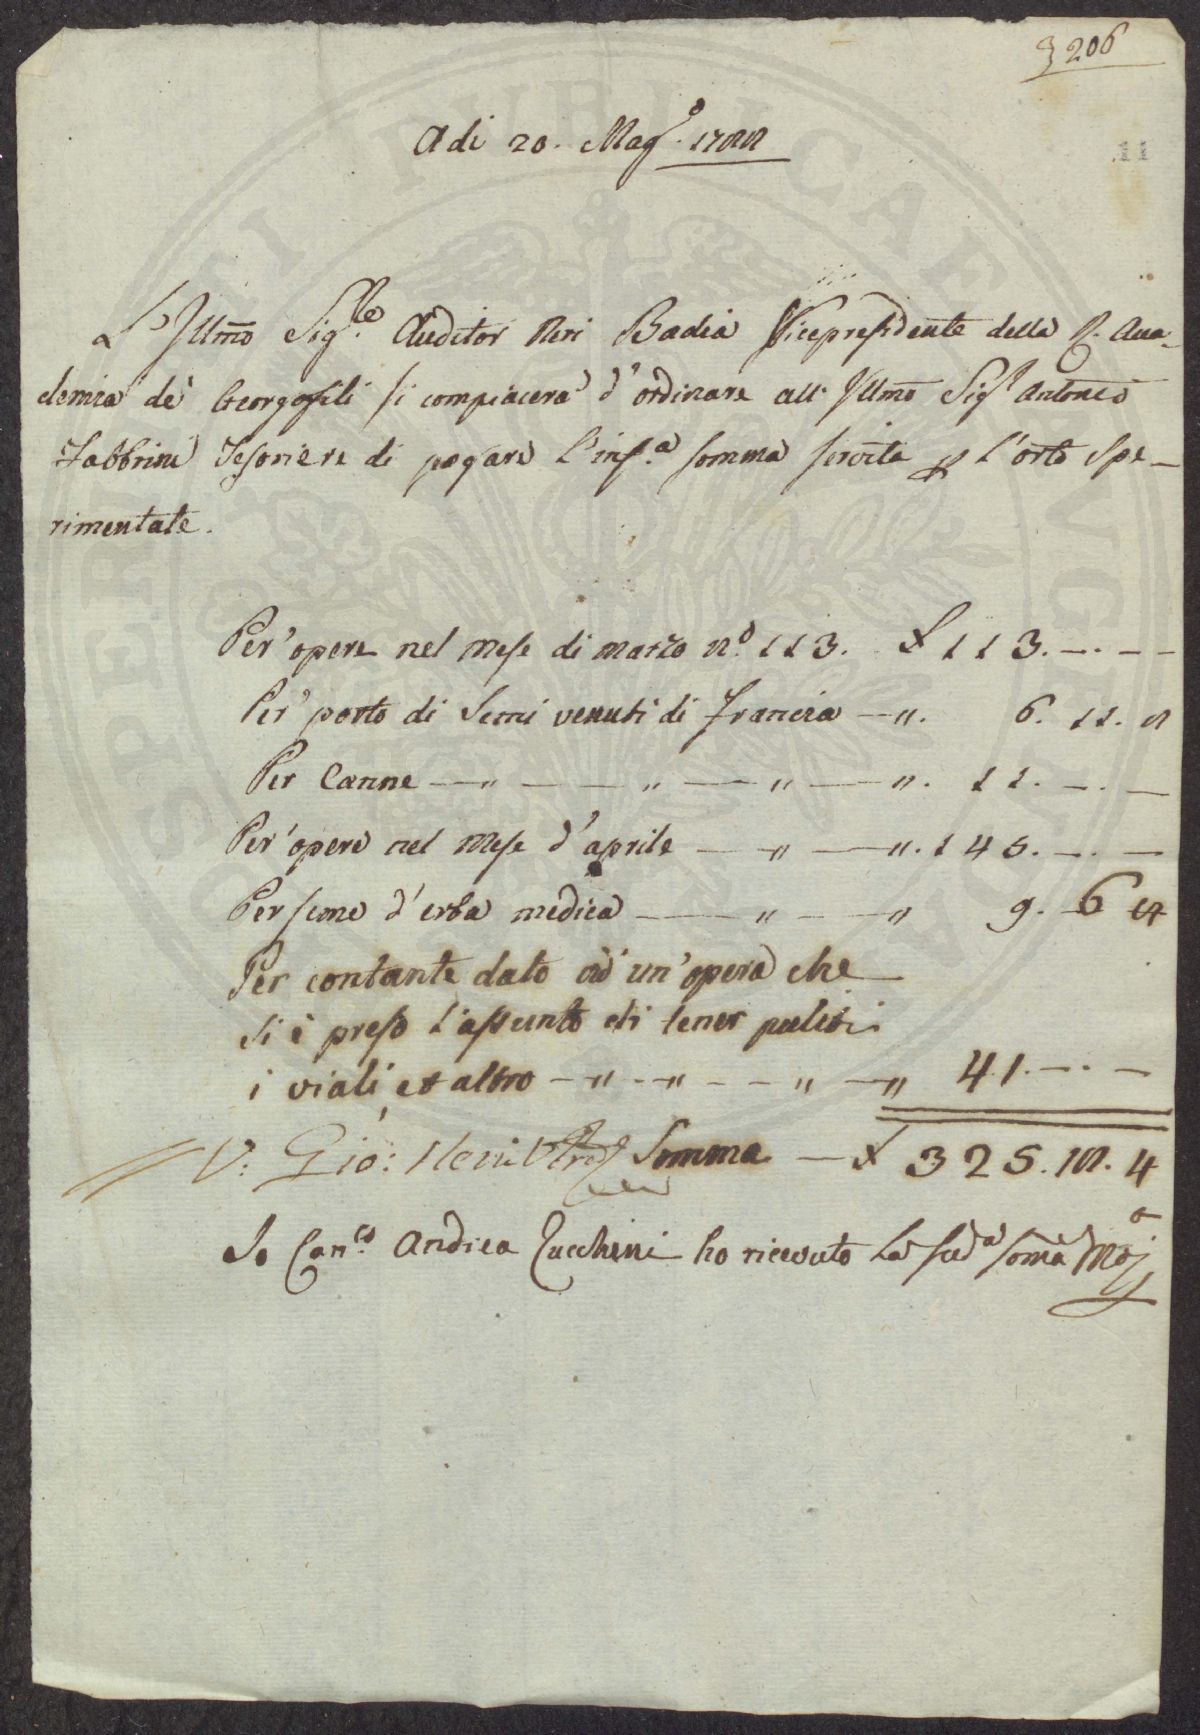 3 206
Adi 20. Magº. 1788
L'Illmo Sigle Auditor Neri Badia Vicepresidente della R. Acca-
demia de' Georgofili si compiacerà d'ordinare all' Illmo Sigr Antonio
Fabbrini Tesoriere di pagare l'infa somma servita p l'orto Spe-
rimentale.
Per opere nel mese di marzo nº 113. £ 113. —. —
Per porto di Semi venuti di Francia — ". 6. 11. 8
Per Canne — " — — " — " — ". 11. —. —
Per opere nel mese d'aprile — " — ". 145. —. —
Per seme d'erba medica — " — " 9. 6 8
Per contante dato ad un'opera che
si è preso l'assunto di tener puliti
i viali et altro — " — " — — " — " 41. —. —
V: Gio: Neri Somma — £ 325. 18. 4
Io Canco Andrea Zucchini ho ricevuto la suda somma Mo